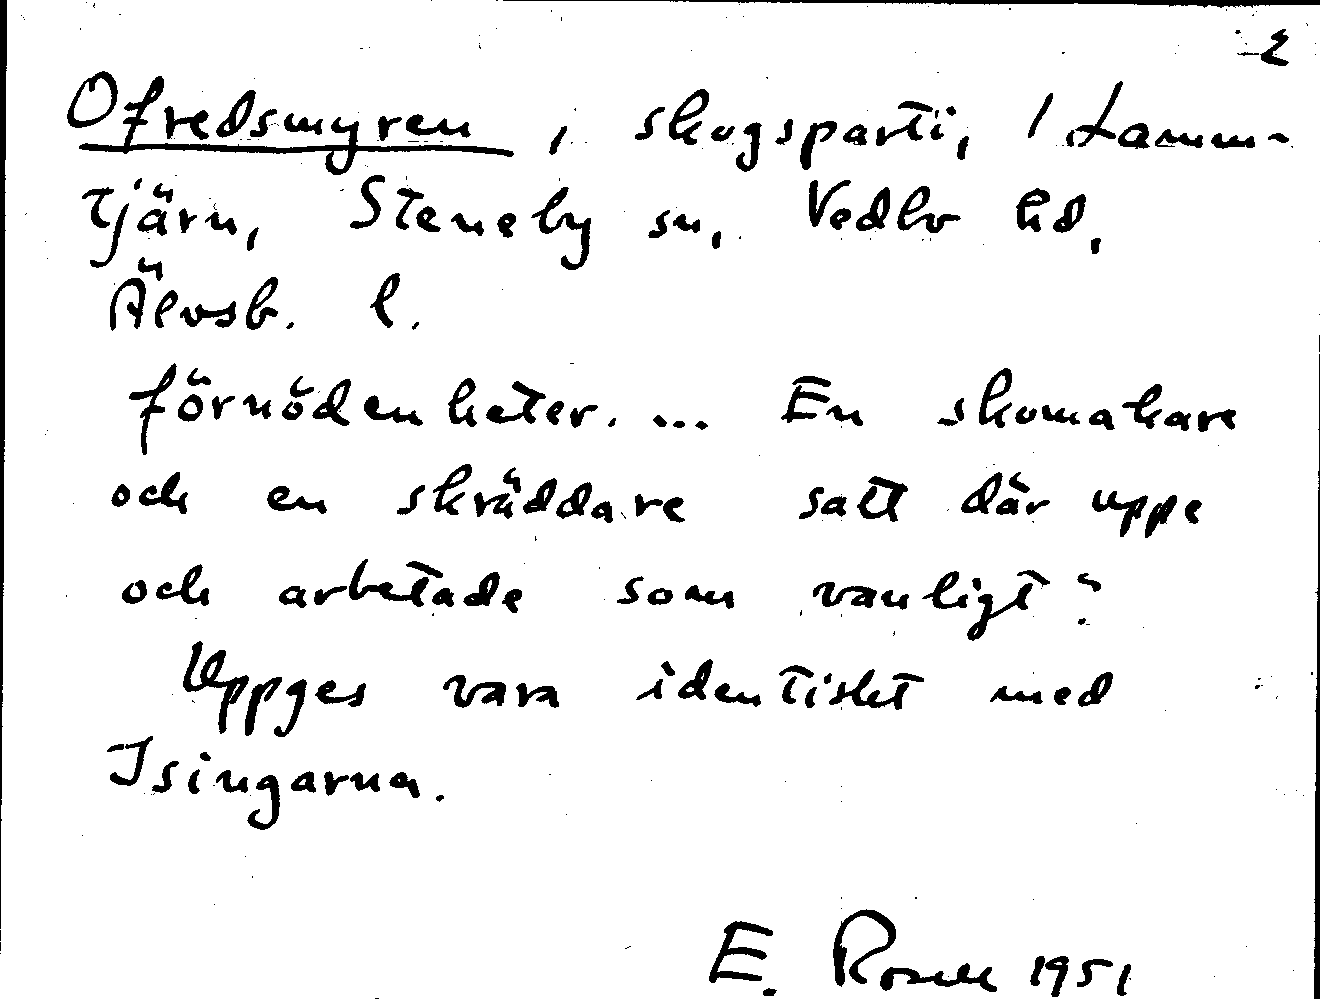 2
Ofredsmyren, skogsparti, 1 Lamm-
tjärn, Steneby sn, Vedbo hd,
Älvsb. l.
förnödenheter. ... En skomakare
och en skräddare satt där uppe
och arbetade som vanligt."
Uppges vara identiskt med
Isingarna.
E. Rosell 1951